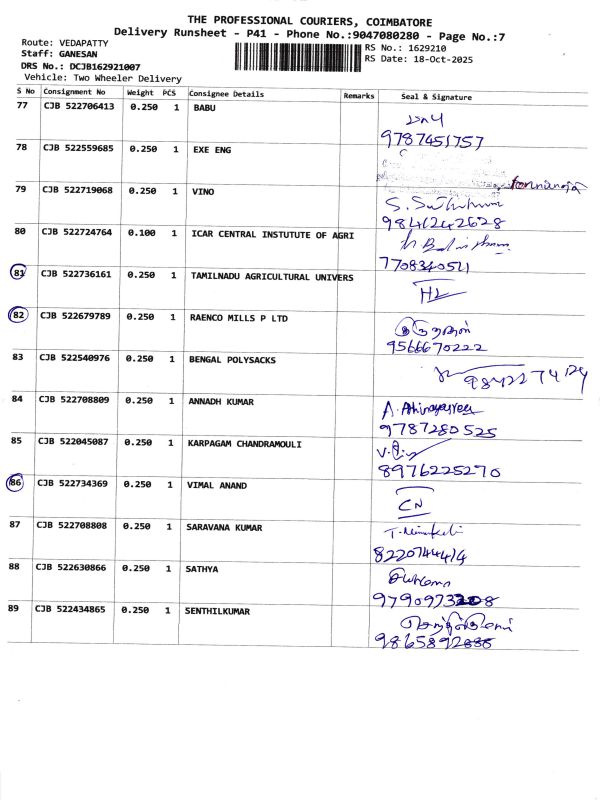 THE PROFESSIONAL COURIERS, COIMBATORE
Delivery Runsheet - P41 - Phone No.:9047080280 - Page No.:7
Route: VEDAPATTY
RS No.: 1629210
Staff: GANESAN
RS Date: 18-Oct-2025
DRS No.: DCJB162921007
Vehicle: Two Wheeler Delivery
S No Consignment No Weight PCS Consignee Details Remarks Seal & Signature
77 CJB 522706413 0.250 1 BABU
9787451757
78 CJB 522559685 0.250 1 EXE ENG
79 CJB 522719068 0.250 1 VINO
9841242628
80 CJB 522724764 0.100 1 ICAR CENTRAL INSTUTUTE OF AGRI
7708340511
81 CJB 522736161 0.250 1 TAMILNADU AGRICULTURAL UNIVERS
HL
82 CJB 522679789 0.250 1 RAENCO MILLS P LTD
9566670222
83 CJB 522540976 0.250 1 BENGAL POLYSACKS
84 CJB 522708809 0.250 1 ANNADH KUMAR
9787280525
85 CJB 522045087 0.250 1 KARPAGAM CHANDRAMOULI
8976225270
86 CJB 522734369 0.250 1 VIMAL ANAND
CN
87 CJB 522708808 0.250 1 SARAVANA KUMAR
8220744414
88 CJB 522630866 0.250 1 SATHYA
89 CJB 522434865 0.250 1 SENTHILKUMAR